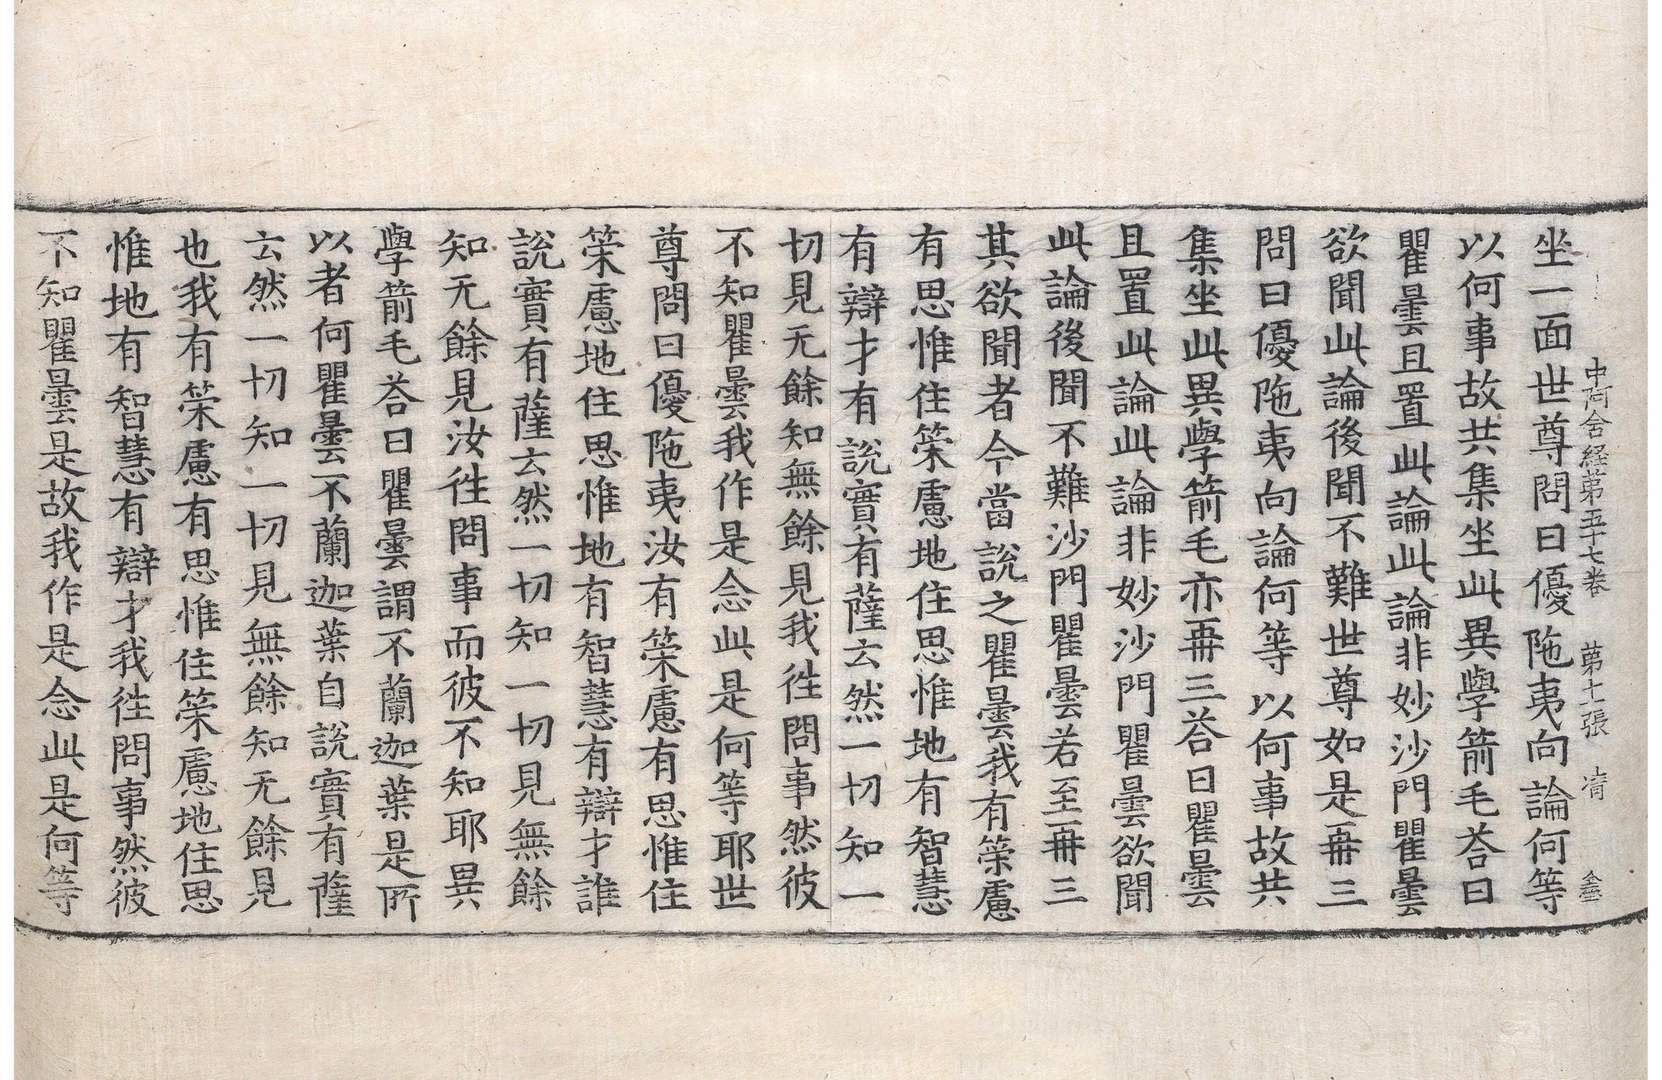 中阿含経第五十七卷 第十一張 清
坐一面世尊問曰優陁夷向論何等
以何事故共集坐此異學箭毛荅曰
瞿曇且置此論此論非妙沙門瞿曇
欲聞此論後聞不難世尊如是再三
問曰優陁夷向論何等以何事故共
集坐此異學箭毛亦再三荅曰瞿曇
且置此論此論非妙沙門瞿曇欲聞
此論後聞不難沙門瞿曇若至再三
其欲聞者今當說之瞿曇我有䇿慮
有思惟住䇿慮地住思惟地有智慧
有辯才有說實有薩云然一切知一
切見无餘知無餘見我徃問事然彼
不知瞿曇我作是念此是何等耶世
尊問曰優陁夷汝有䇿慮有思惟住
䇿慮地住思惟地有智慧有辯才誰
說實有薩云然一切知一切見無餘
知无餘見汝徃問事而彼不知耶異
學箭毛荅曰瞿曇謂不蘭迦葉是所
以者何瞿曇不蘭迦葉自說實有薩
云然一切知一切見無餘知无餘見
也我有䇿慮有思惟住䇿慮地住思
惟地有智慧有辯才我徃問事然彼
不知瞿曇是故我作是念此是何等